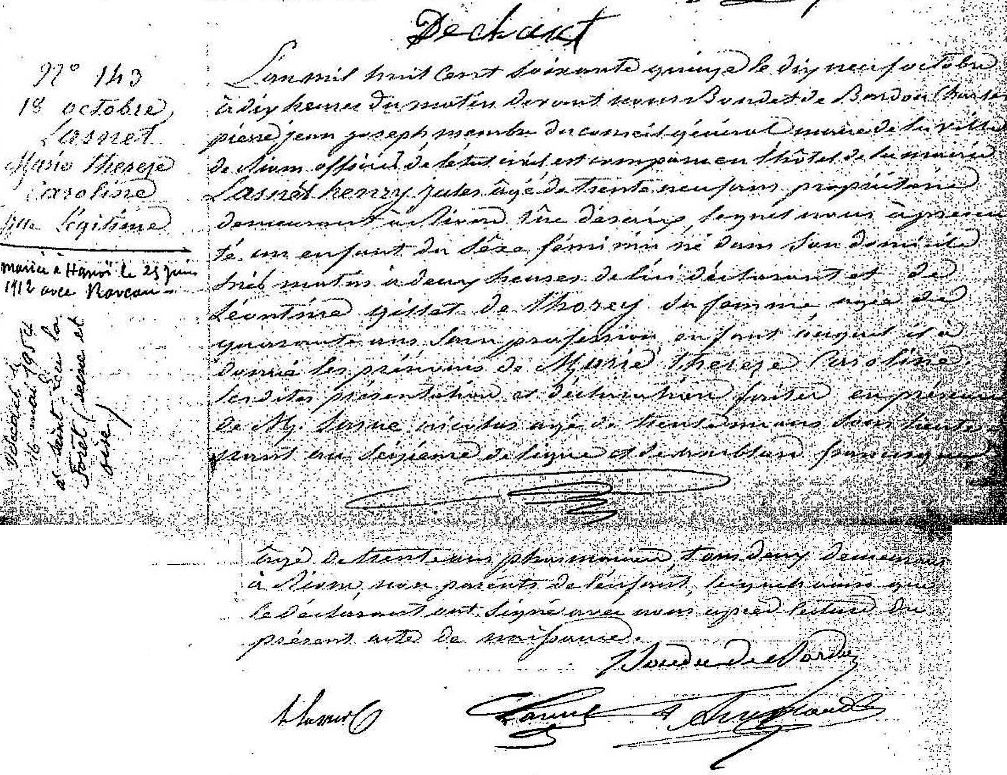 Dechaut
N° 143
18 octobre
Lasnet
Marie thereze
Caroline
fille légitime
mariée à Hanoï le 25 juin
1912 avec Raveau
Décédée le
16 mai 1954
à Saint-Leu la
Foret (seine et
oise)
L'an mil huit cent soixante quinze le dix neuf octobre
à dix heures du matin devant nous Boudet de Bardon Charles
pierre jean joseph membre du conseil général maire de la ville
de Riom officier de l'état civil est comparu en l'hôtel de la mairie
Lasnet henry jules âgé de trente neuf ans, propriétaire
demeurant à Riom, lequel nous à présen
té un enfant du sèxe féminin né dans son domicile
hier matin à deux heures de lui déclarant et de
Léontine gillet de thorey sa femme agée de
quarante ans sans profession enfant auquel il à
donné les prénoms de Marie thereze Caroline
lesdites présentation et déclaration faites en présence
de M. nicolas agé de trente un ans
au seizième de ligne et de
âgé de trente ans pharmacien, tous deux demeurant
à Riom, non parents de l'enfant, lesquels ainsi que
le déclarant ont signé avec nous après lecture du
présent acte de naissance.
Boudet de Bardon